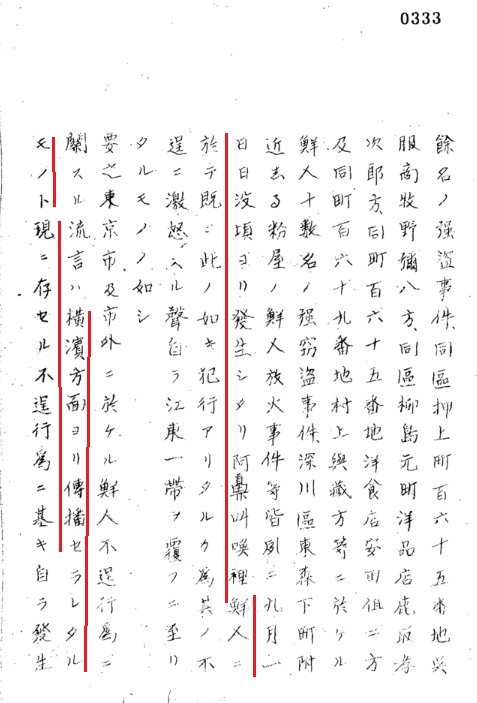 0333
餘名ノ強盗事件、同區押上町百六十五番地呉
服商牧野彌八方、同區柳島元町洋品店鹿取孝
次郎方、同町百六十五番地洋食店安田伹二方
及同町百六十九番地村上與藏方等ニ於ケル
鮮人十数名ノ強窃盗事件、深川區東森下町附
近 粉屋ノ鮮人放火事件等皆 ニ九月一
日日没頃ヨリ發生シタリ阿鼻叫喚裡鮮人ニ
於テ既ニ此ノ如キ犯行アリタルカ為其ノ不
逞ニ激怒スル聲自ラ江東一帯ヲ覆フニ至リ
タルモノノ如シ
要之東京市及市外ニ於ケル鮮人不逞行為ニ
關スル流言ハ横濱方面ヨリ傳播セラレタル
モノト現ニ存セル不逞行為ニ基キ自ラ發生